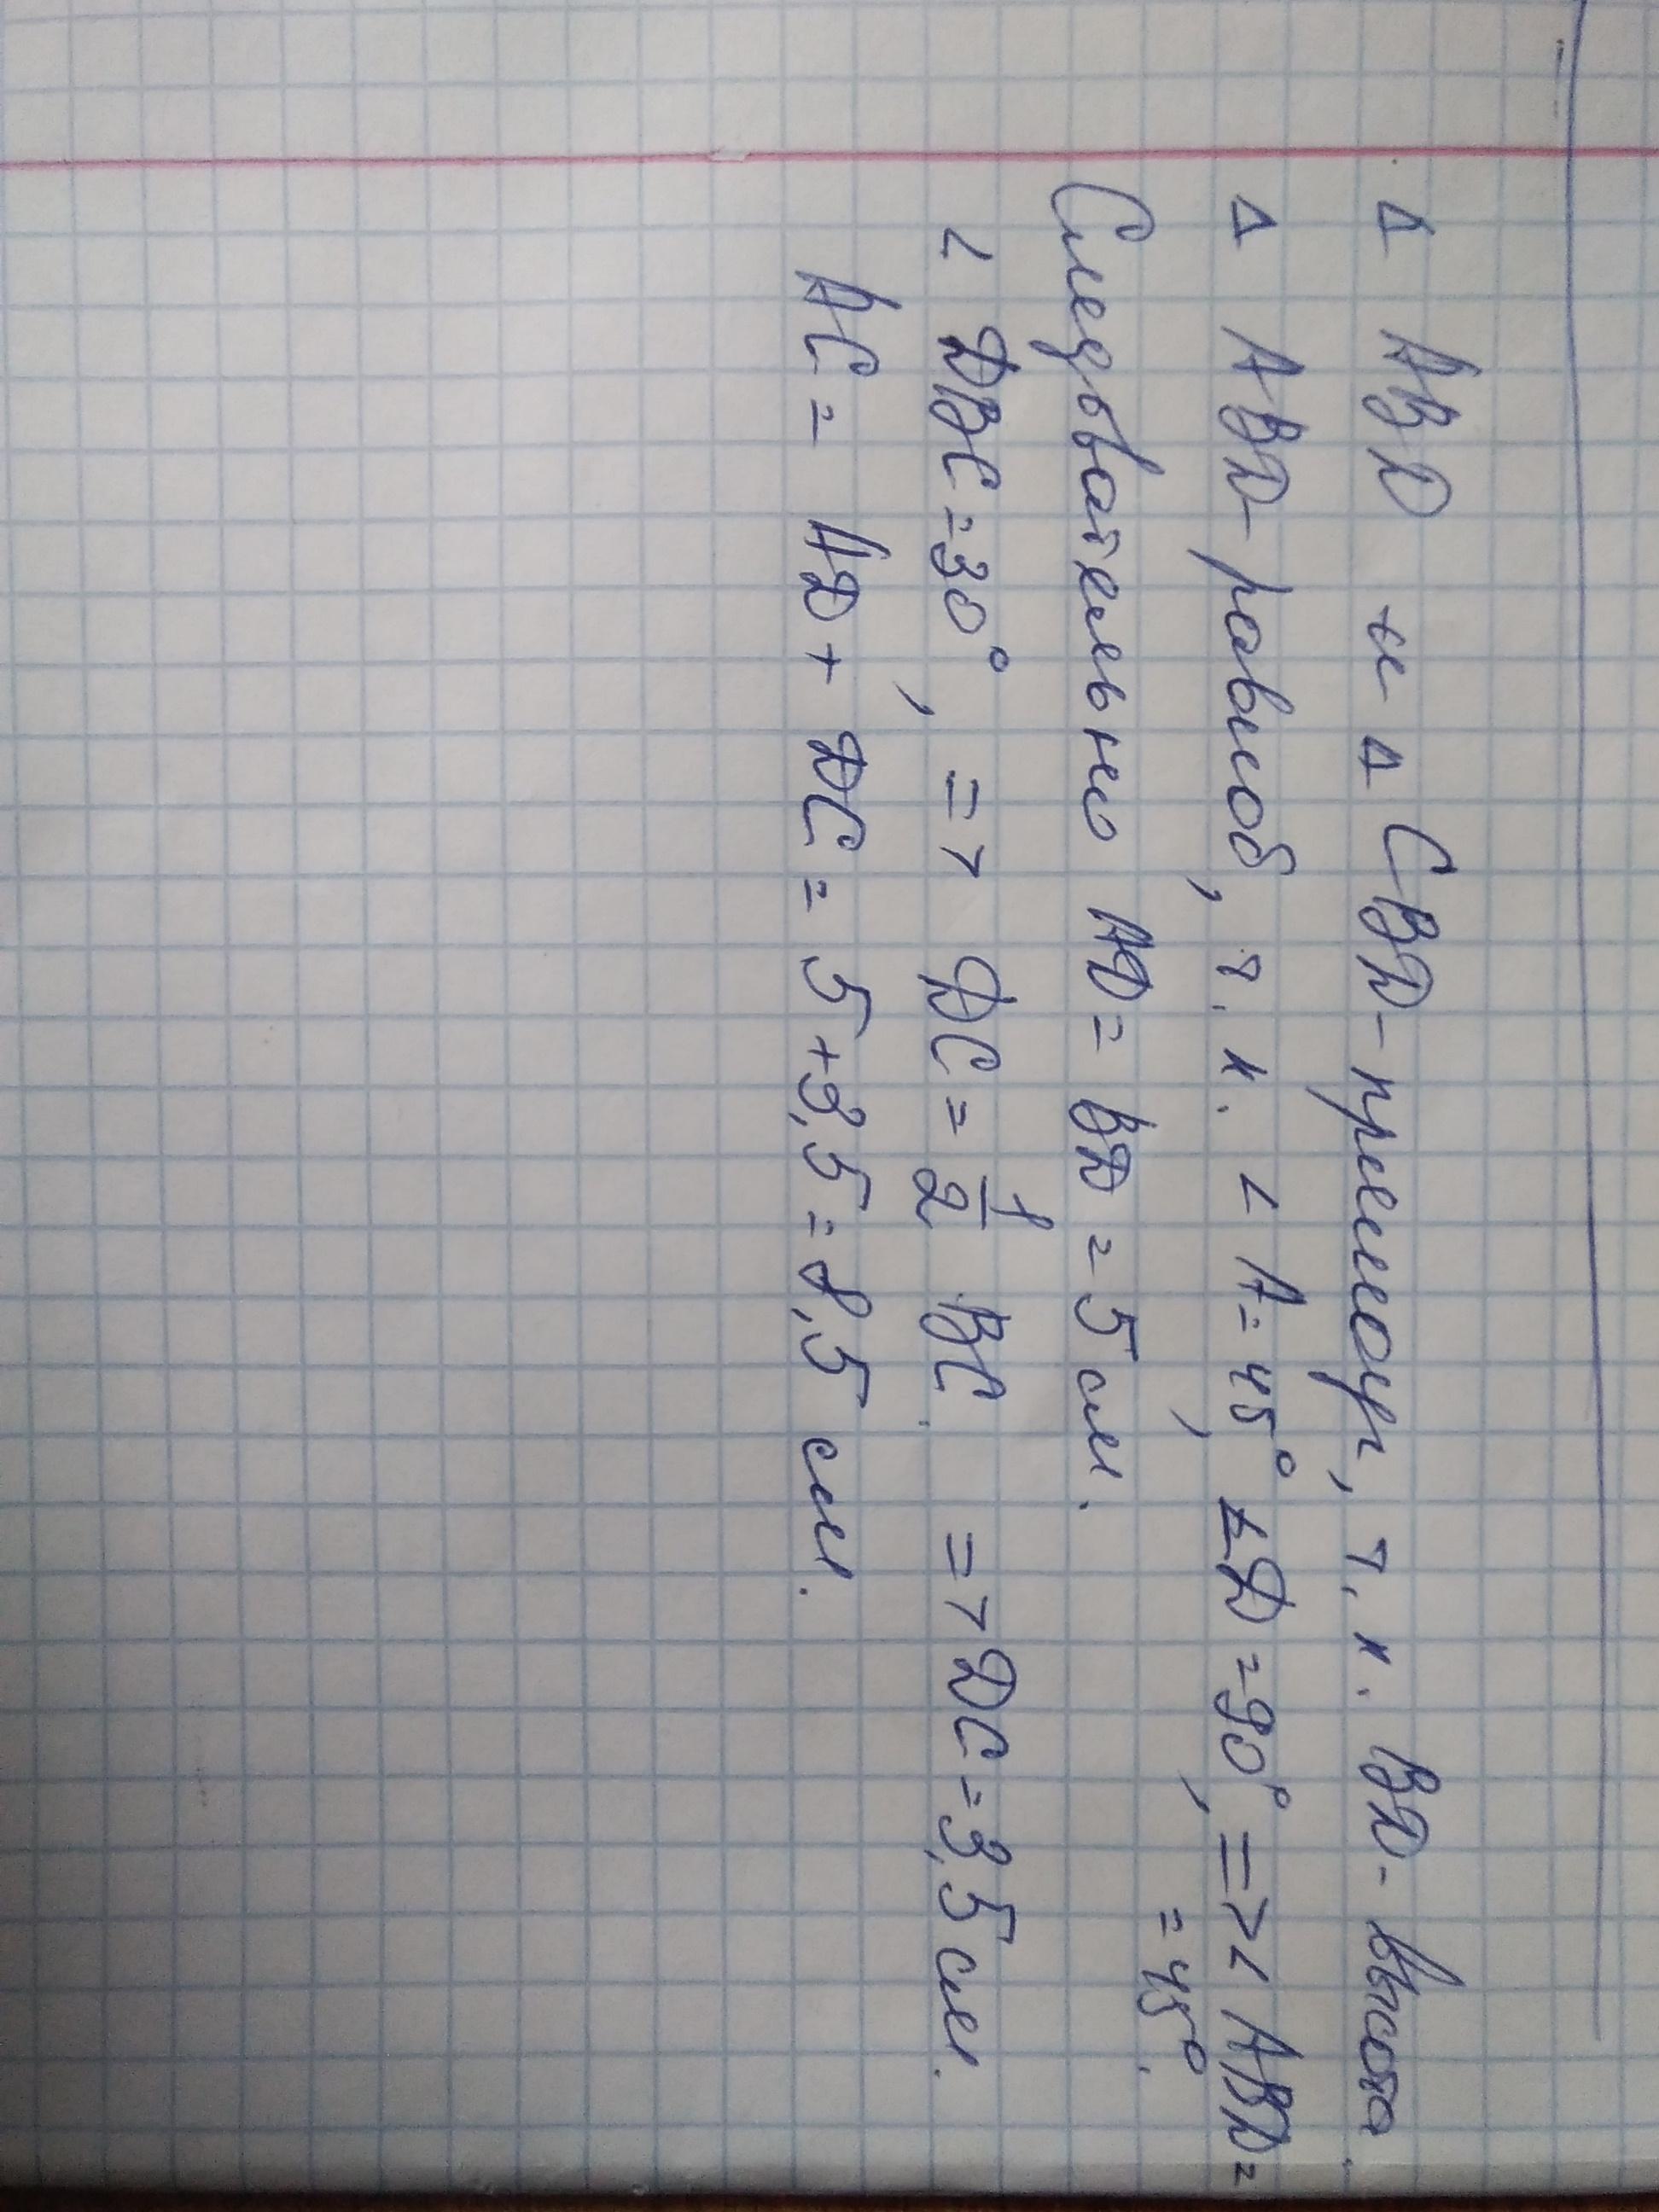 Δ ABD и Δ CBD - прямоуг, т. к. BD - высота.
Δ ABD - равноб, т. к. ∠ A = 45°, ∠D = 90°, => ∠ ABD =
= 45°.
Следовательно AD = BD = 5 см.
∠ DBC = 30°, => DC = 1/2 BC. => DC = 3,5 см.
AC = AD + DC = 5 + 3,5 = 8,5 см.